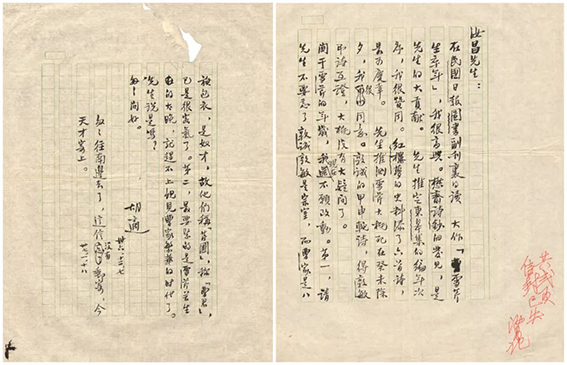 汝昌先生：
在民國日報圖書副刊裏得讀 大作「曹雪芹
生卒年」，我很高興。懋齋詩鈔的發見，是
先生的大貢獻 先生推定東皋集的編年次
序，我很贊同。紅樓夢的史料添了六首詩，
最可慶幸。 先生推測雪芹大概死在癸未除
夕，我很同意。敦誠的甲申輓詩，得敦敏
弔詩互證，大概沒有大疑問了。
關于雪芹的年歲，我現在還不願改動。第一，請
先生不要忘了敦誠敦敏是宗室，而曹家是八
旗包衣，是奴才，故他們稱「芹圃」，稱「曹君」，
已是很客氣了。第二，最要緊的是雪芹若生
的太晚，就趕不上親見曹家繁華的時代了。
先生說是嗎？
匆匆問好。
胡適
卅六、十二、七
匆匆往南邊去了，這信沒有郵寄，今
天才寄上。 卅七、一、十八